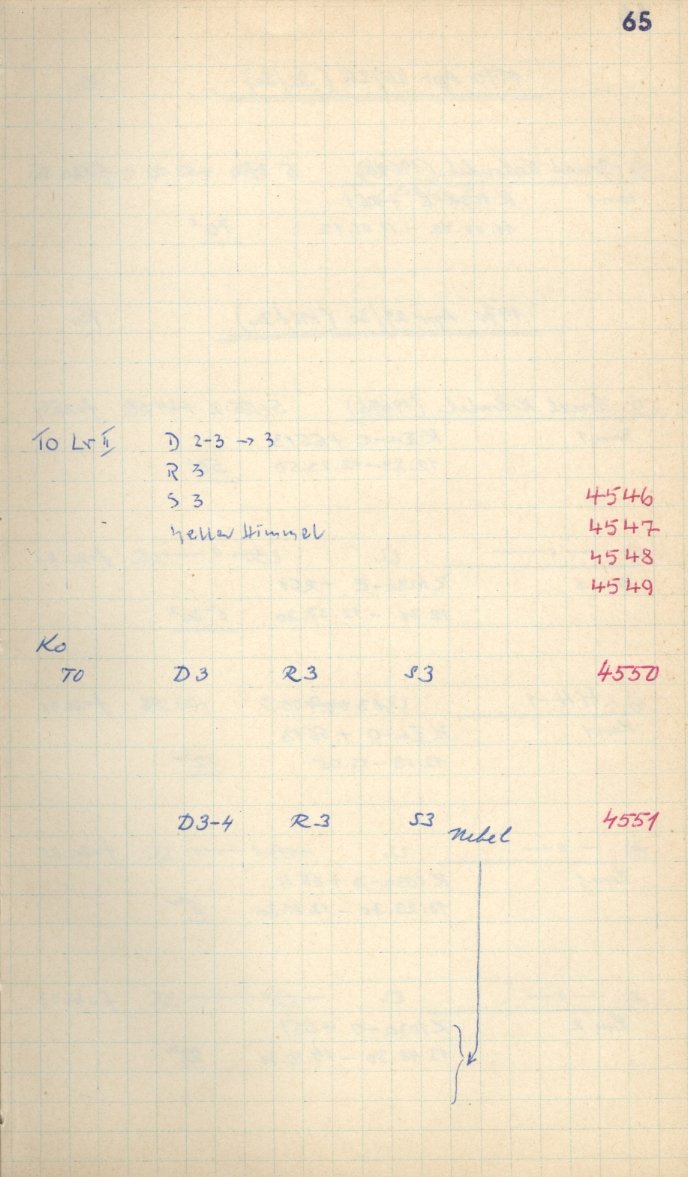 65
TO Lr II D 2-3 → 3
R 3
S 3 4546
heller Himmel 4547
4548
4549
Ko
TO D3 R3 S3 4550
D3-4 R3 S3 Nebel 4551